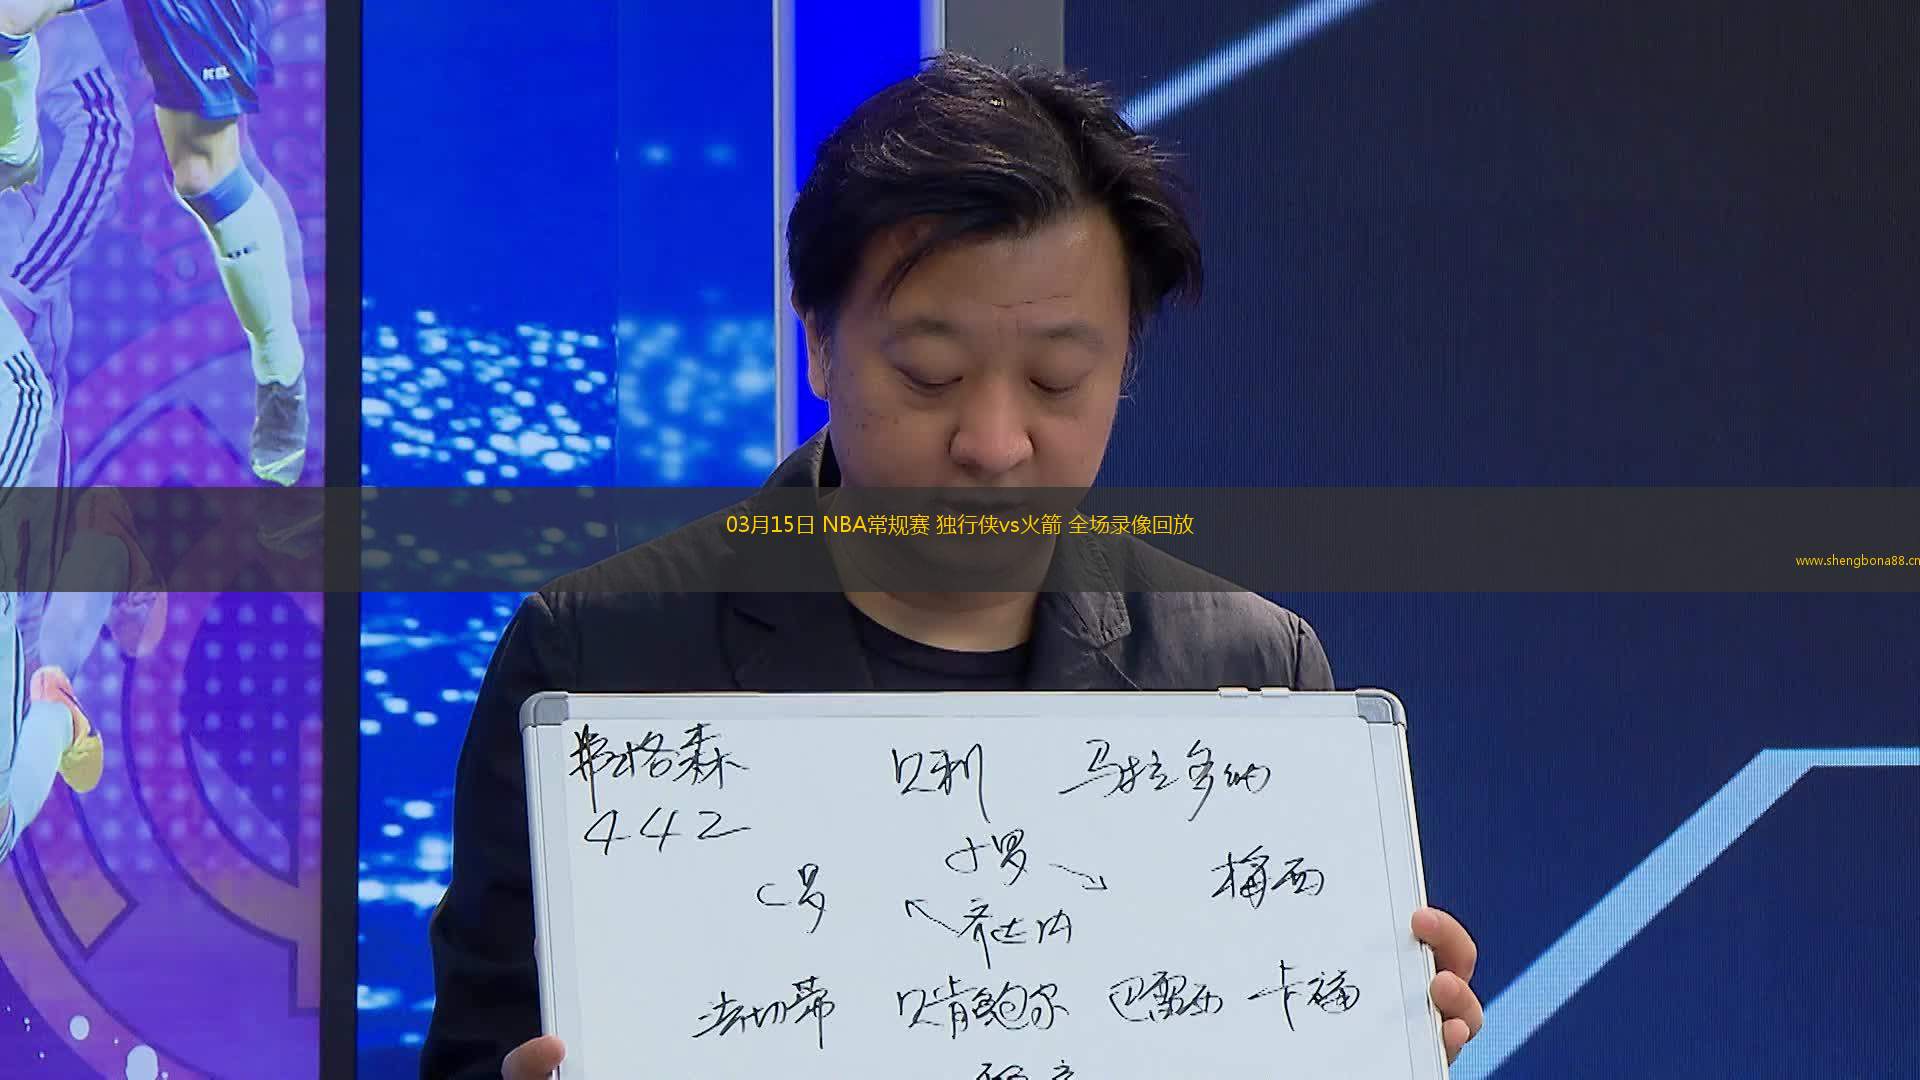 03月15日 NBA常规赛 独行侠vs火箭 全场录像回放
www.shengbona88.cn
弗格森 贝利 马拉多纳
442
小罗
C罗 梅西
齐达内
法切蒂 贝肯鲍尔 巴雷西 卡福